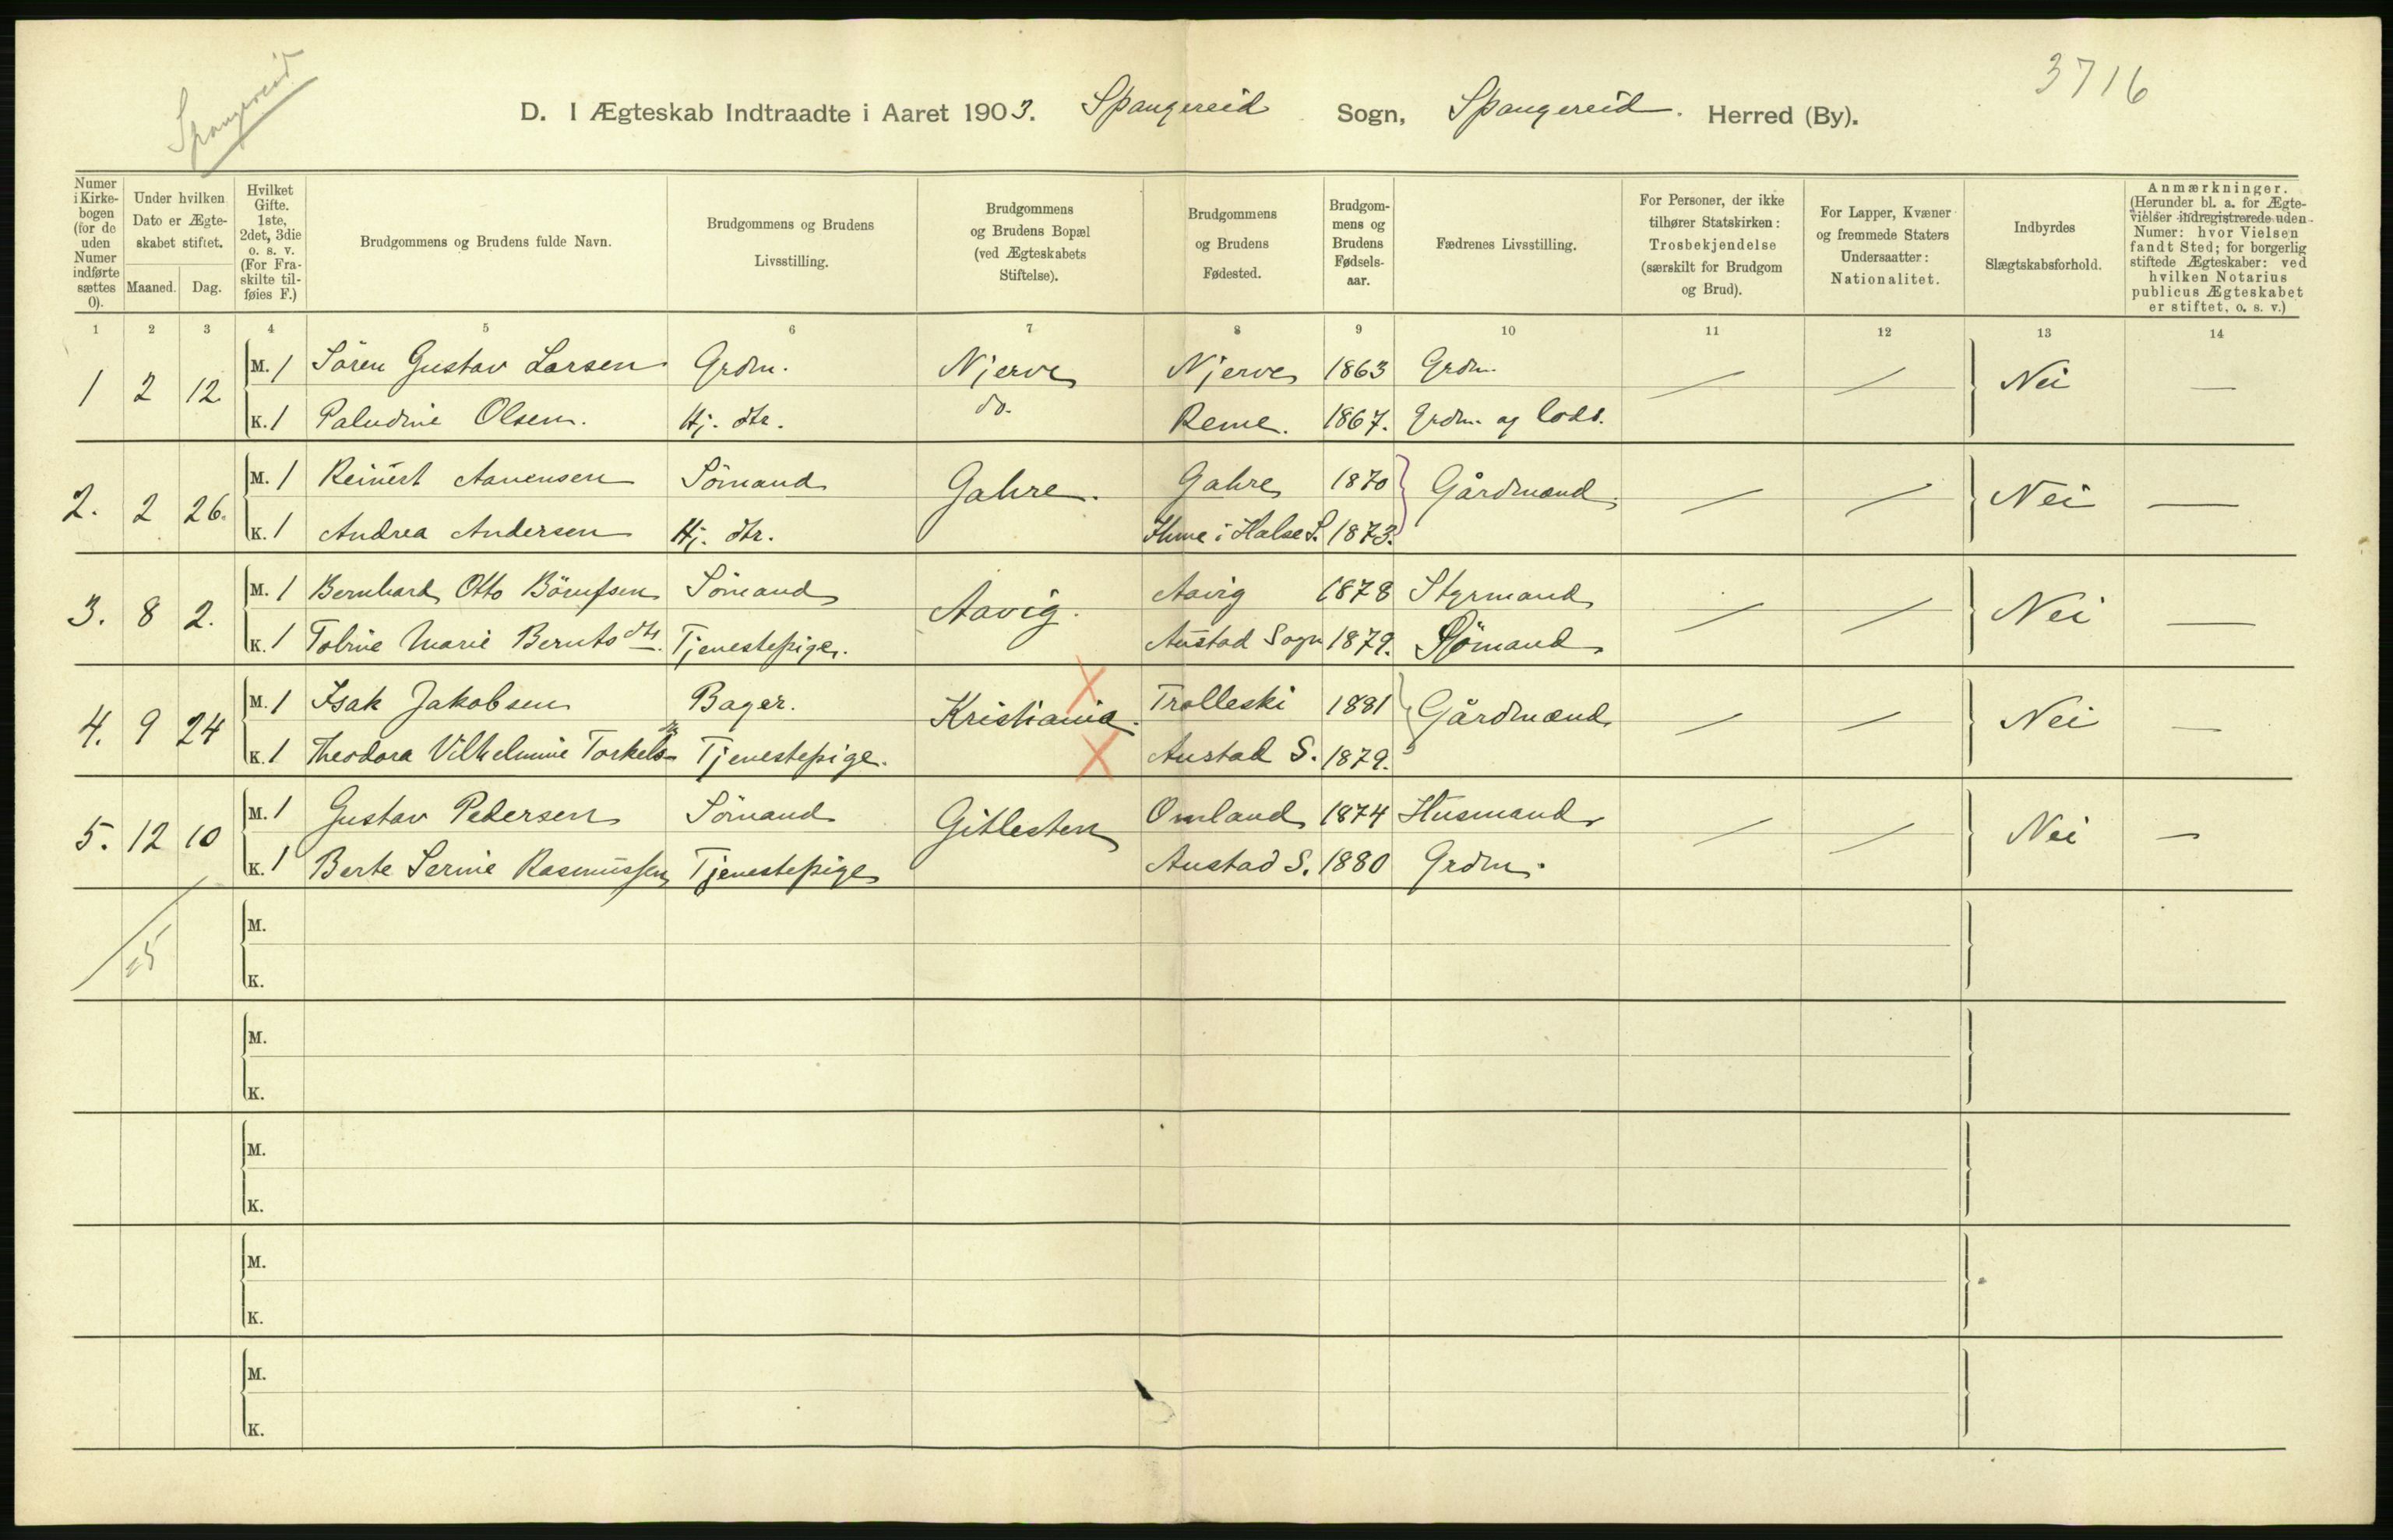 Spangereid
3716
D. I Ægteskab Indtraadte i Aaret 1903. Spangereid Sogn, Spangereid. Herred (By).
Numer i Kirkebogen (for de uden Numer indførte sættes 0).
Under hvilken Dato er Ægteskabet stiftet.
Maaned. Dag.
Hvilket Gifte. 1ste, 2det, 3die o. s. v. (For Fraskilte tilføies F.)
Brudgommens og Brudens fulde Navn.
Brudgommens og Brudens Livsstilling.
Brudgommens og Brudens Bopæl (ved Ægteskabets Stiftelse).
Brudgommens og Brudens Fødested.
Brudgommens og Brudens Fødselsaar.
Fædrenes Livsstilling.
For Personer, der ikke tilhører Statskirken: Trosbekjendelse (særskilt for Brudgom og Brud).
For Lapper, Kvæner og fremmede Staters Undersaatter: Nationalitet.
Indbyrdes Slægtskabsforhold.
Anmærkninger. (Herunder bl. a. for Ægtevielser indregistrerede uden Numer: hvor Vielsen fandt Sted; for borgerlig stiftede Ægteskaber: ved hvilken Notarius publicus Ægteskabet er stiftet, o. s. v.)
1 2 3 4 5 6 7 8 9 10 11 12 13 14
1 2 12 M. 1 Sören Gustav Larsen Grdm. Njerve Njerve 1863 Grdm. Nei —
K. 1 Paludine Olsen. Hj. dtr. do. Reme. 1867. Grdm. og lods.
2. 2 26. M. 1 Reinert Aanensen Sömand Gahre. Gahre 1870 Gårdmænd Nei —
K. 1 Andrea Andersen Hj. dtr. Ihme i Halse S. 1873.
3. 8 2. M. 1 Bernhard Otto Börufsen Sömand Aavig. Aavig 1878 Styrmand Nei —
K. 1 Tobine Marie Bernts dtr. Tjenestepige. Austad Sogn 1879. Sjömand
4. 9 24 M. 1 Isak Jakobsen Bager. Kristiania. Trolleski 1881 Gårdmænd Nei —
K. 1 Theodora Vilhelmine Torkels Tjenestepige. Austad S. 1879.
5. 12 10 M. 1 Gustav Pedersen Sömand Gitlesten Omland 1874 Husmand Nei —
K. 1 Berte Serine Rasmussen Tjenestepige Austad S. 1880 Grdm.
M.
K.
M.
K.
M.
K.
M.
K.
M.
K.